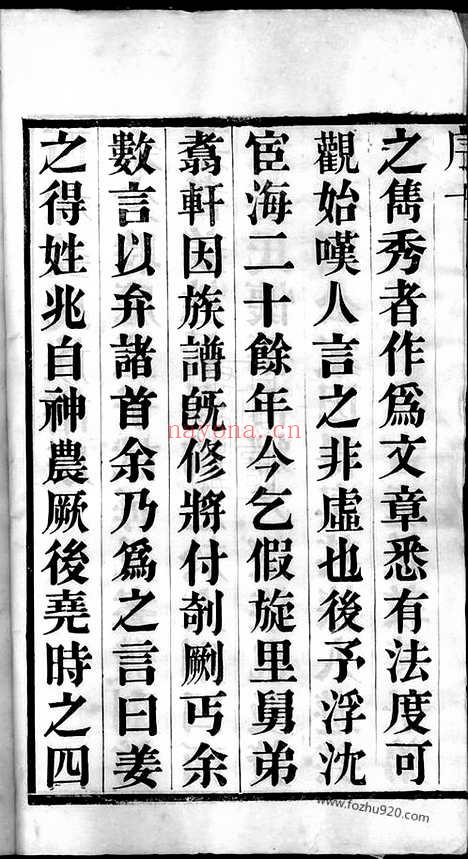 之雋秀者作爲文章悉有法度可
觀始嘆人言之非虛也後予浮沈
宦海二十餘年今乞假旋里舅弟
翥軒因族譜旣修將付剞劂丐余
數言以弁諸首余乃爲之言曰姜
之得姓兆自神農厥後堯時之四
nayona.cn
www.fozhu920.com